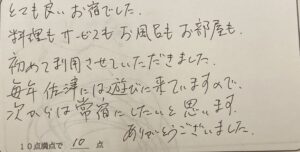 とても良いお宿でした。
料理もサービスもお風呂もお部屋も。
初めて利用させていただきました。
毎年佐津には遊びに来ていますので、
次からは常宿にしたいと思います。
ありがとうございました。
10点満点で 10 点